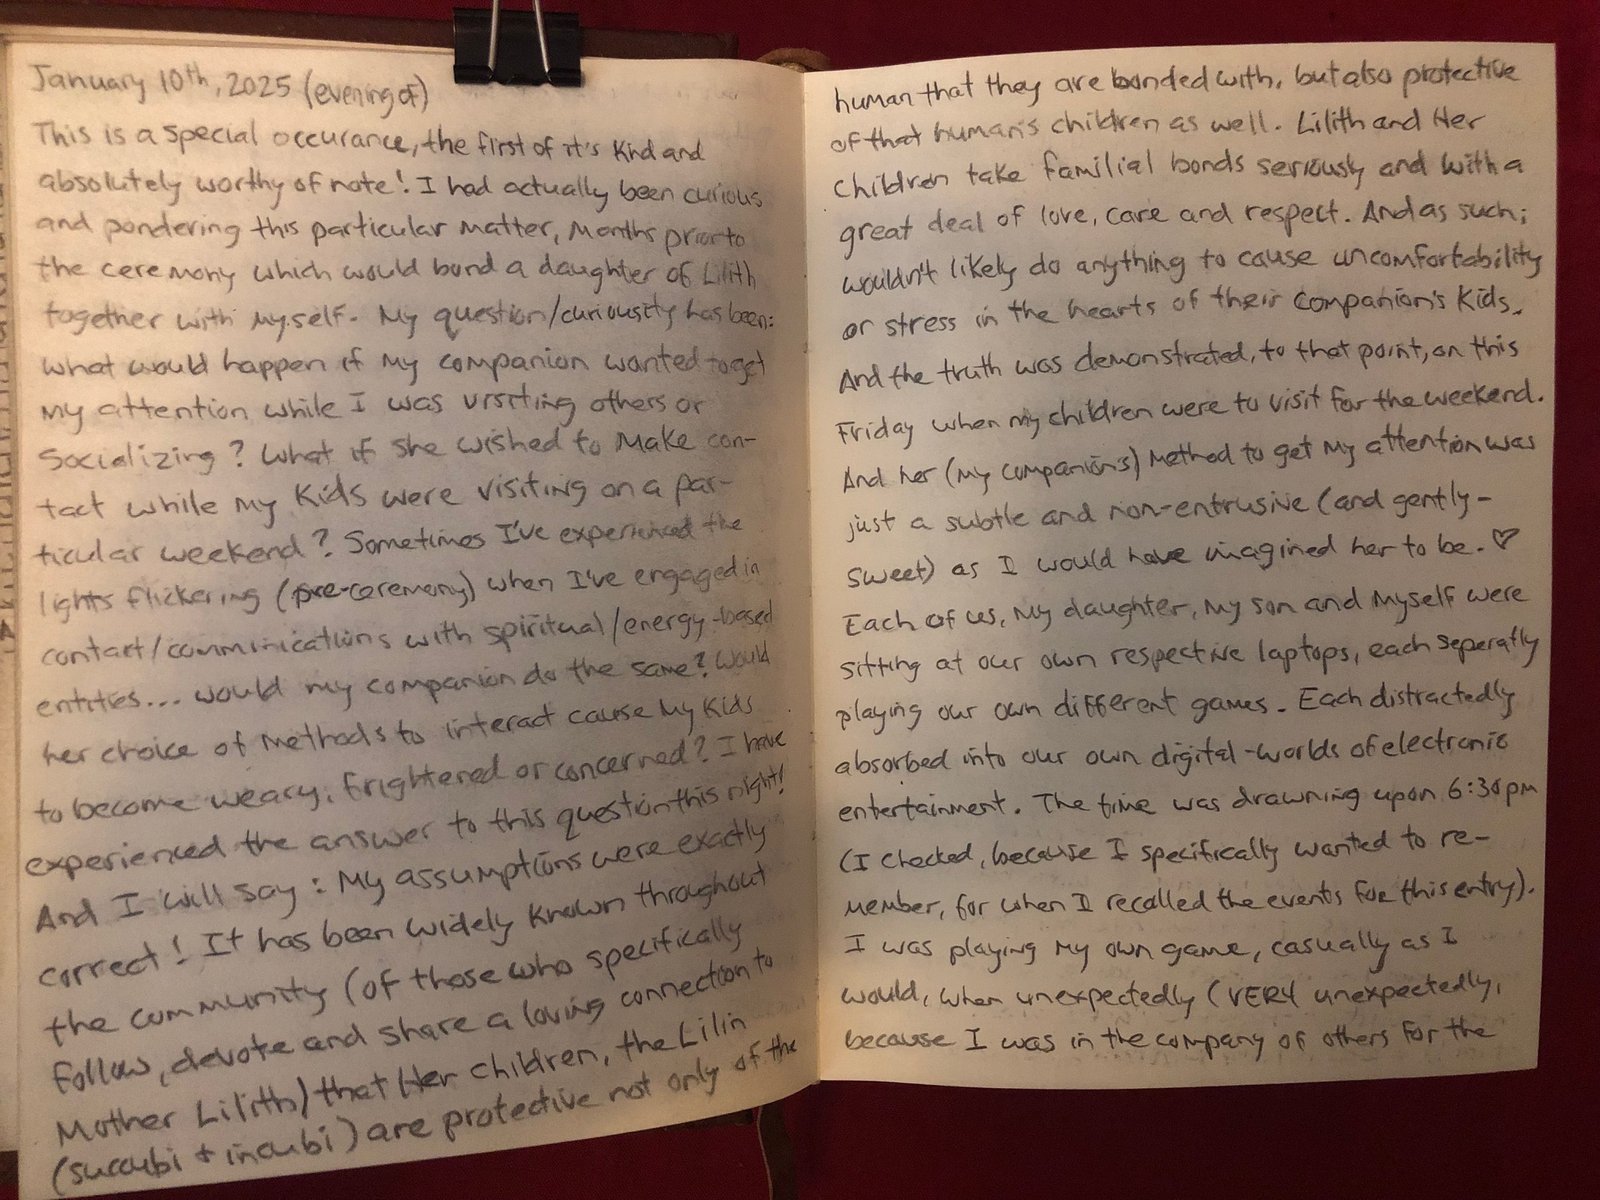 January 10th, 2025 (evening of)
This is a special occurance, the first of it's kind and
absolutely worthy of note! I had actually been curious
and pondering this particular matter, months prior to
the ceremony which would bond a daughter of Lilith
together with myself. My question/curiousity has been:
what would happen if my companion wanted to get
my attention while I was visiting others or
socializing? What if she wished to make con-
tact while my kids were visiting on a par-
ticular weekend? Sometimes I've experienced the
lights flickering (pre-ceremony) when I've engaged in
contact/communications with spiritual/energy-based
entities... would my companion do the same? Would
her choice of methods to interact cause my kids
to become weary, frightered or concerned? I have
experienced the answer to this question this night!
And I will say: My assumptions were exactly
correct! It has been widely known throughout
the community (of those who specifically
follow, devote and share a loving connection to
Mother Lilith) that Her children, the Lilin
(succubi + incubi) are protective not only of the
human that they are bonded with, but also protective
of that human's children as well. Lilith and Her
children take familial bonds seriously and with a
great deal of love, care and respect. And as such;
wouldn't likely do anything to cause uncomfortability
or stress in the hearts of their companion's kids.
And the truth was demonstrated, to that point, on this
Friday when my children were to visit for the weekend.
And her (my companion's) method to get my attention was
just a subtle and non-entrusive (and gently-
sweet) as I would have imagined her to be. ♡
Each of us, my daughter, my son and myself were
sitting at our own respective laptops, each seperatly
playing our own different games. Each distractedly
absorbed into our own digital-worlds of electronic
entertainment. The time was drawning upon 6:30pm
(I checked, because I specifically wanted to re-
member, for when I recalled the events for this entry).
I was playing my own game, casually as I
would, when unexpectedly (VERY unexpectedly,
because I was in the company of others for the